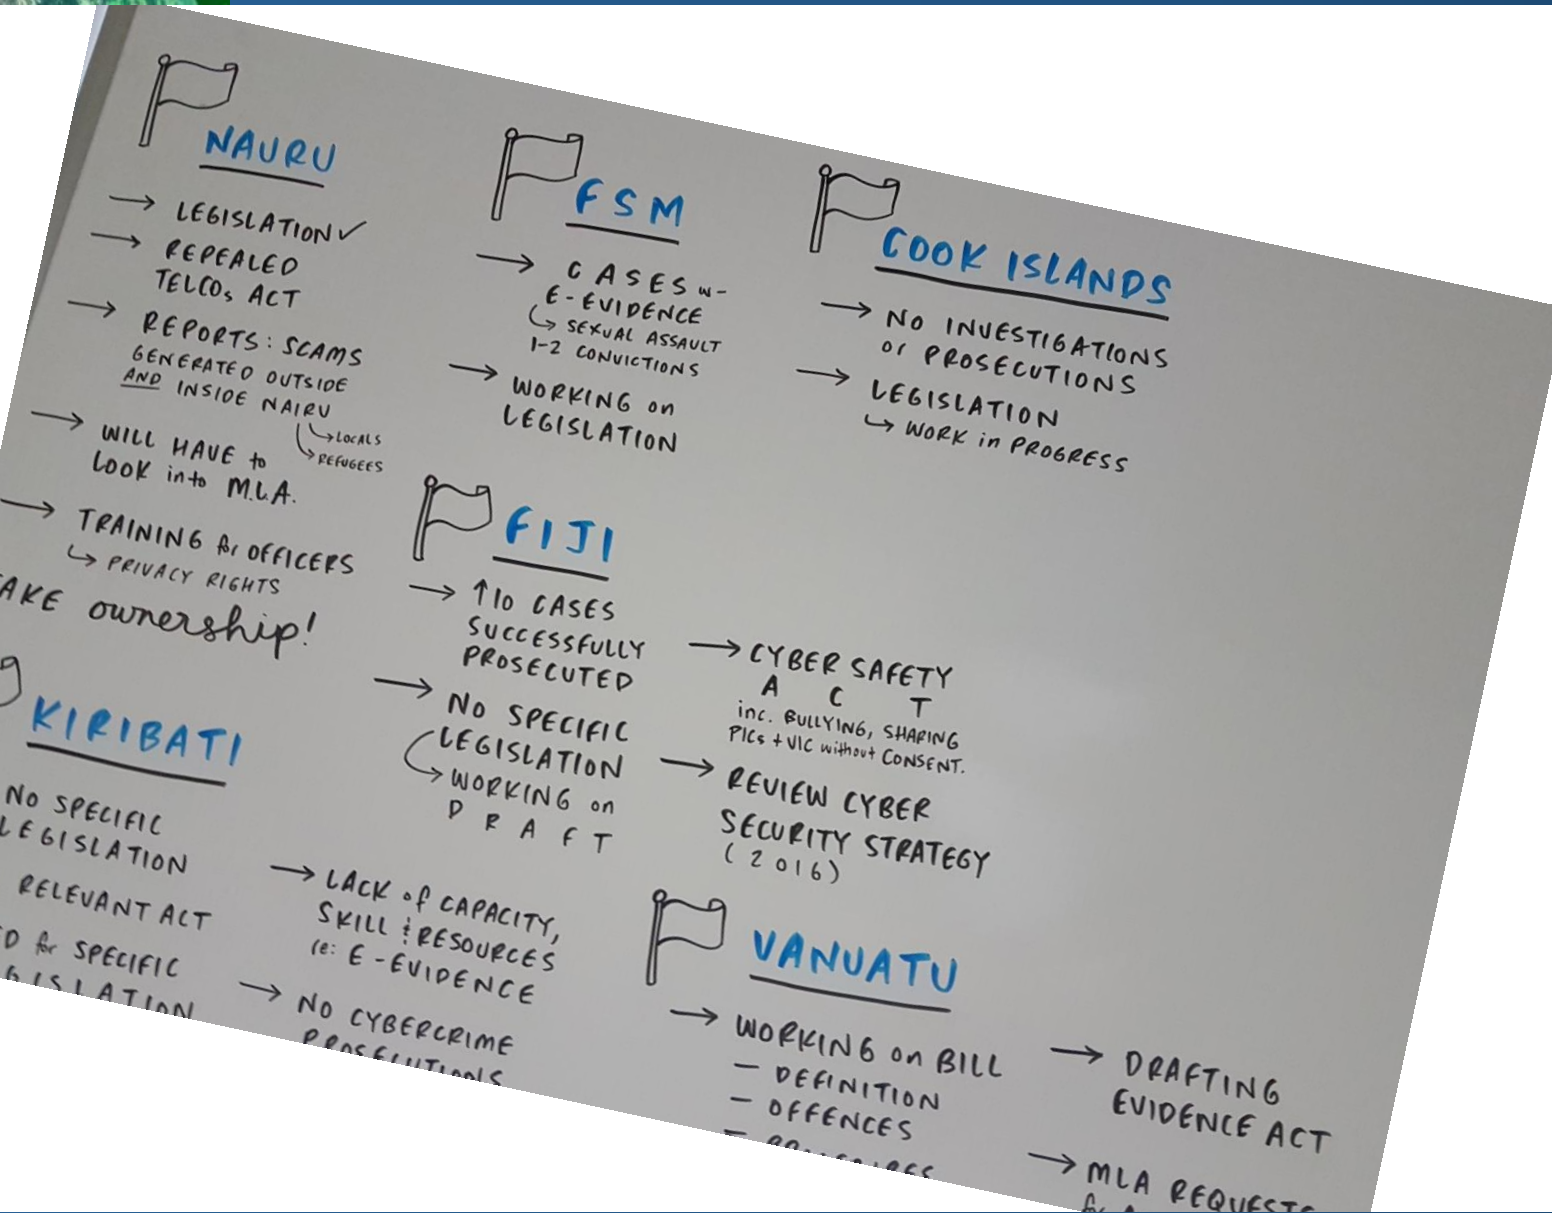 NAURU
→ LEGISLATION ✓
→ REPEALED
TELCOs ACT
→ REPORTS: SCAMS
GENERATED OUTSIDE
AND INSIDE NAIRU
↳ LOCALS
↳ REFUGEES
→ WILL HAVE to
LOOK into M.L.A.
→ TRAINING for OFFICERS
↳ PRIVACY RIGHTS
ownership!
FSM
→ CASES w-
E-EVIDENCE
↳ SEXUAL ASSAULT
1-2 CONVICTIONS
→ WORKING on
LEGISLATION
COOK ISLANDS
→ NO INVESTIGATIONS
or PROSECUTIONS
→ LEGISLATION
↳ WORK in PROGRESS
FIJI
→ ↑10 CASES
SUCCESSFULLY
PROSECUTED
→ NO SPECIFIC
LEGISLATION
↳ WORKING on
DRAFT
→ CYBER SAFETY
ACT
inc. BULLYING, SHARING
PICs + VIC without CONSENT.
→ REVIEW CYBER
SECURITY STRATEGY
(2016)
KIRIBATI
NO SPECIFIC
LEGISLATION
RELEVANT ACT
for SPECIFIC
→ LACK of CAPACITY,
SKILL & RESOURCES
ie: E-EVIDENCE
→ NO CYBERCRIME
PROSECUTIONS
VANUATU
→ WORKING on BILL
– DEFINITION
– OFFENCES
→ DRAFTING
EVIDENCE ACT
→ MLA REQUESTS